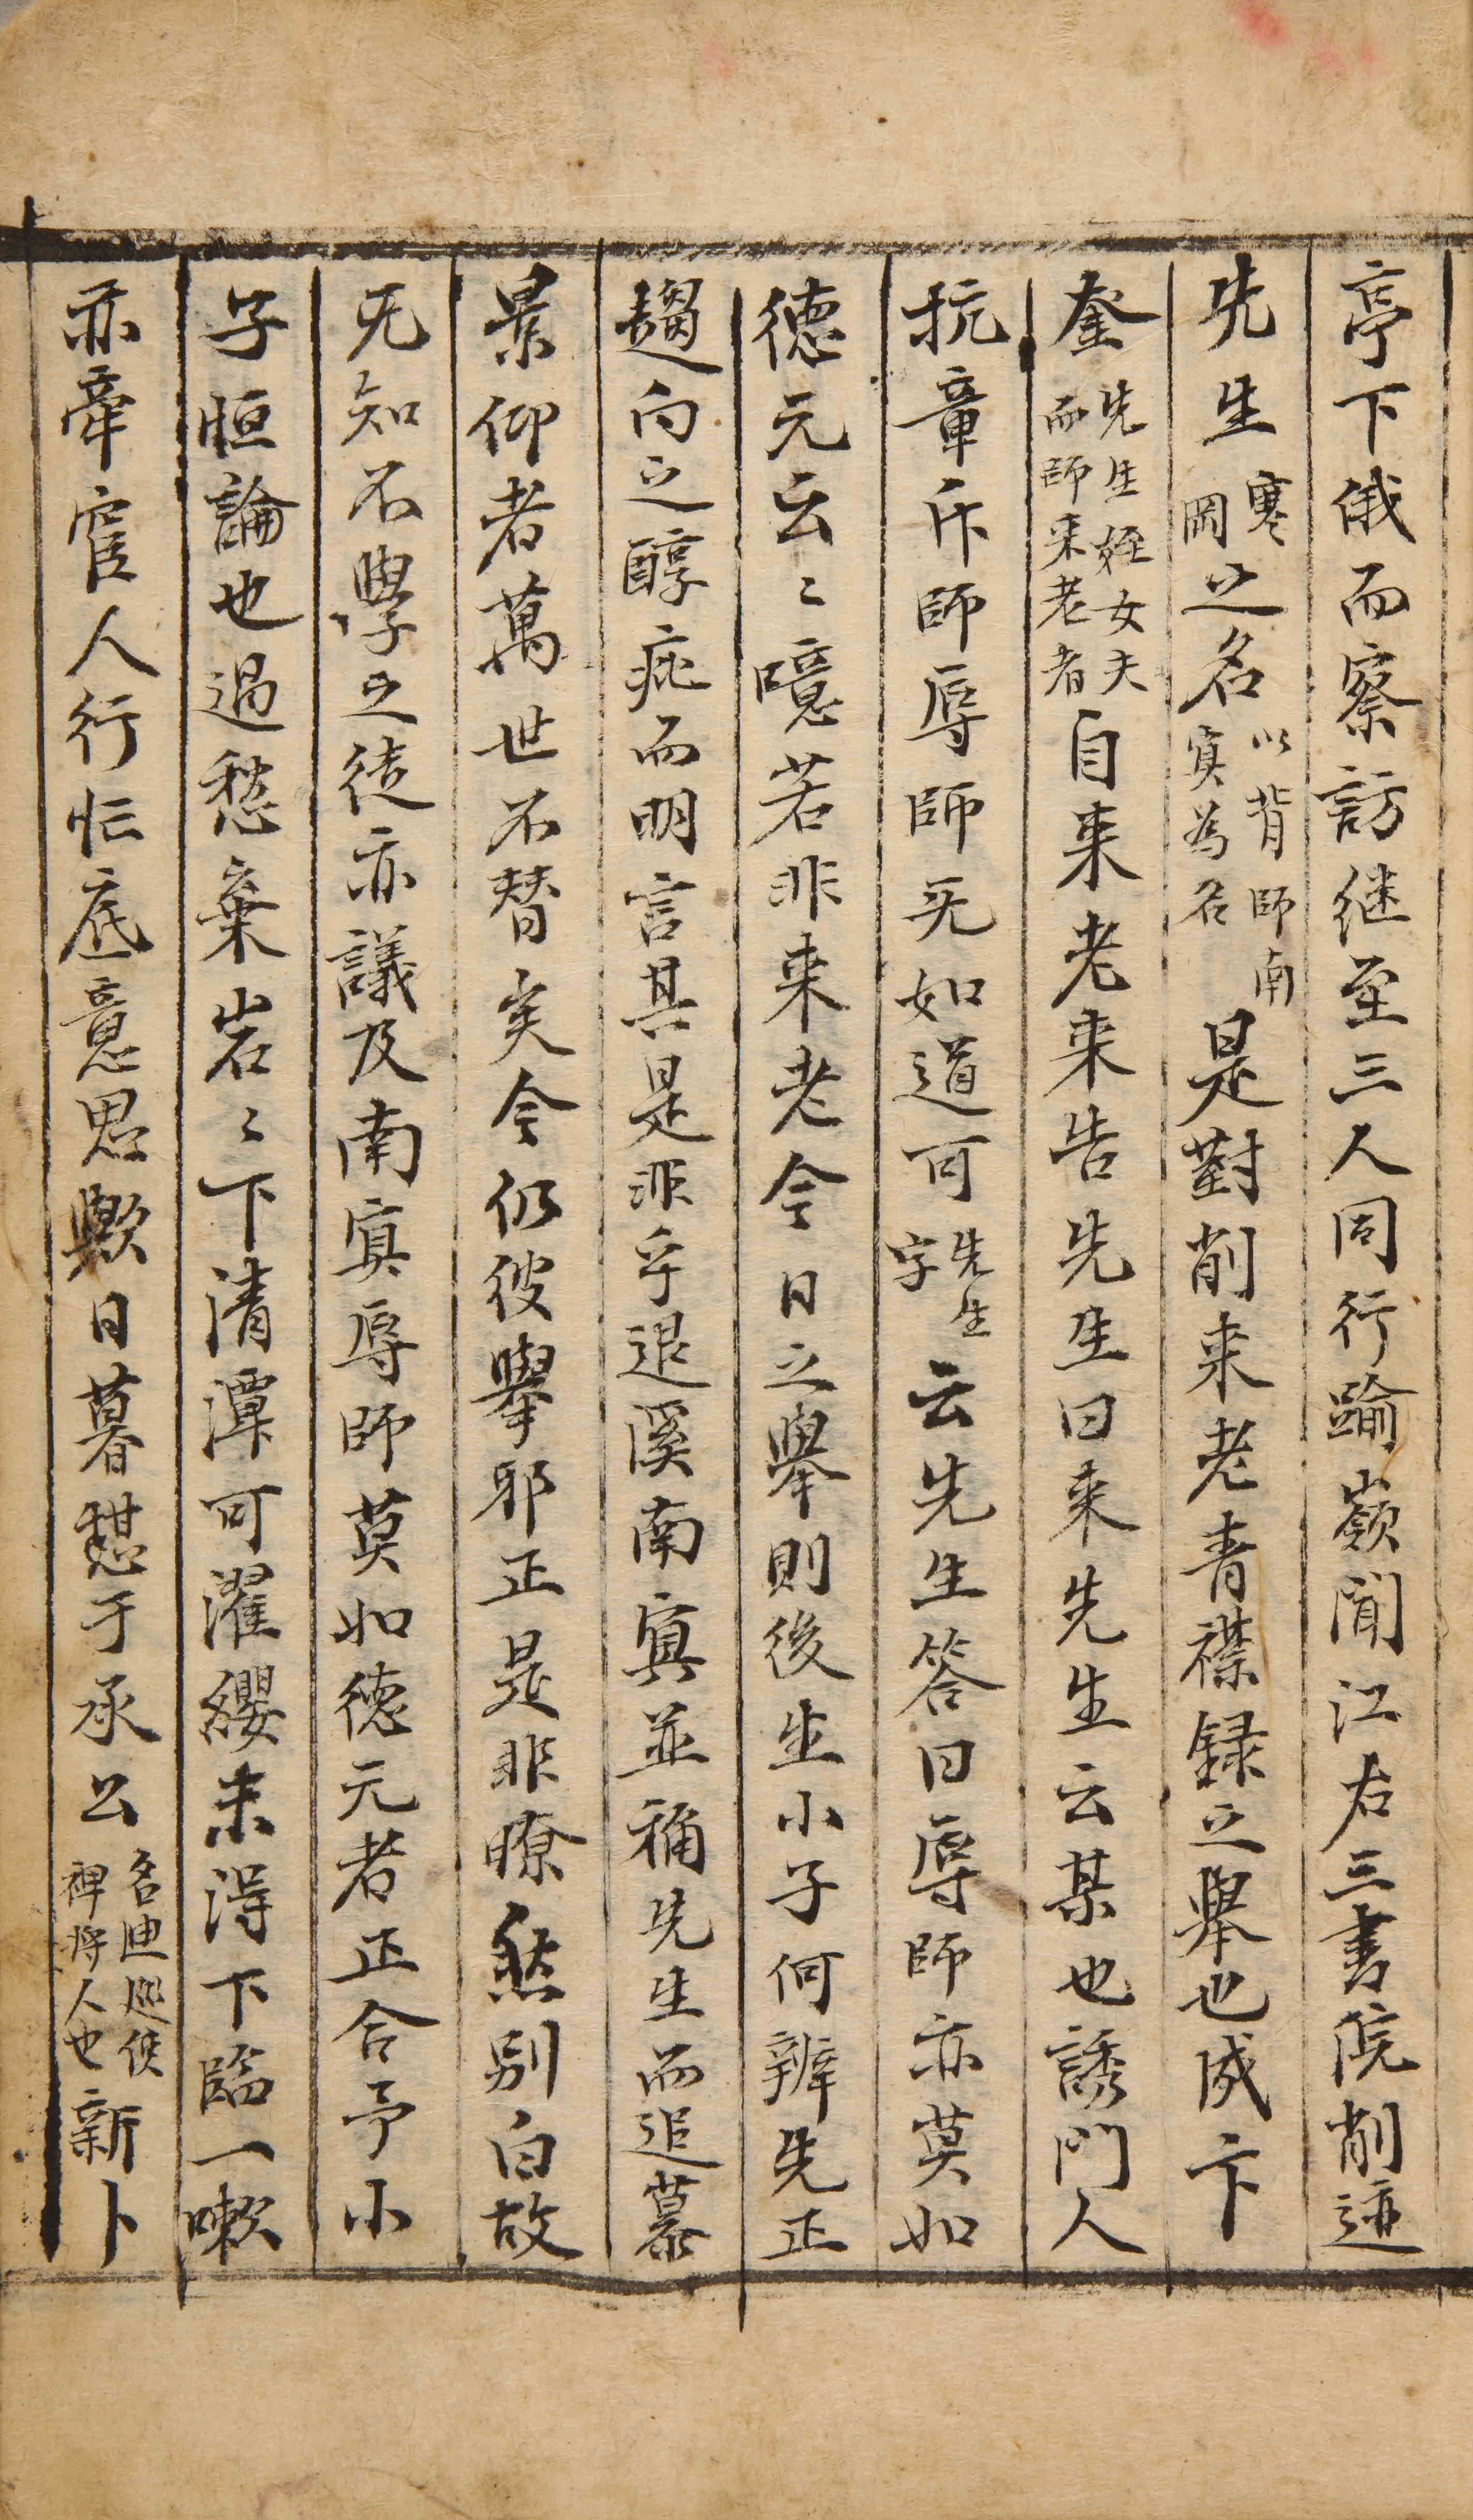 亭下俄而察訪继至三人同行踰嶺聞江右三書院削迹
先生寒岡之名以背師南冥為名是對削来老青襟録之舉也成卞
奎先生姪女夫而師来老者自来老来告先生曰来先生云某也誘門人
抗章斥師辱師无如道可先生字云先生答曰辱師亦莫如
德元云〻噫若非来老今日之舉則後生小子何辨先正
趨向之醇疵而明言其是非乎退溪南冥並稱先生而追慕
景仰者萬世不替矣今仍彼舉邪正是非瞭然別白故
无知不學之徒亦議及南冥辱師莫如德元者正合予小
子恒論也過愁棄岩〻下清潭可濯纓未得下臨一嗽
亦牽宦人行忙底意思歟日暮憇于承公名迪巡使裨将人也新卜